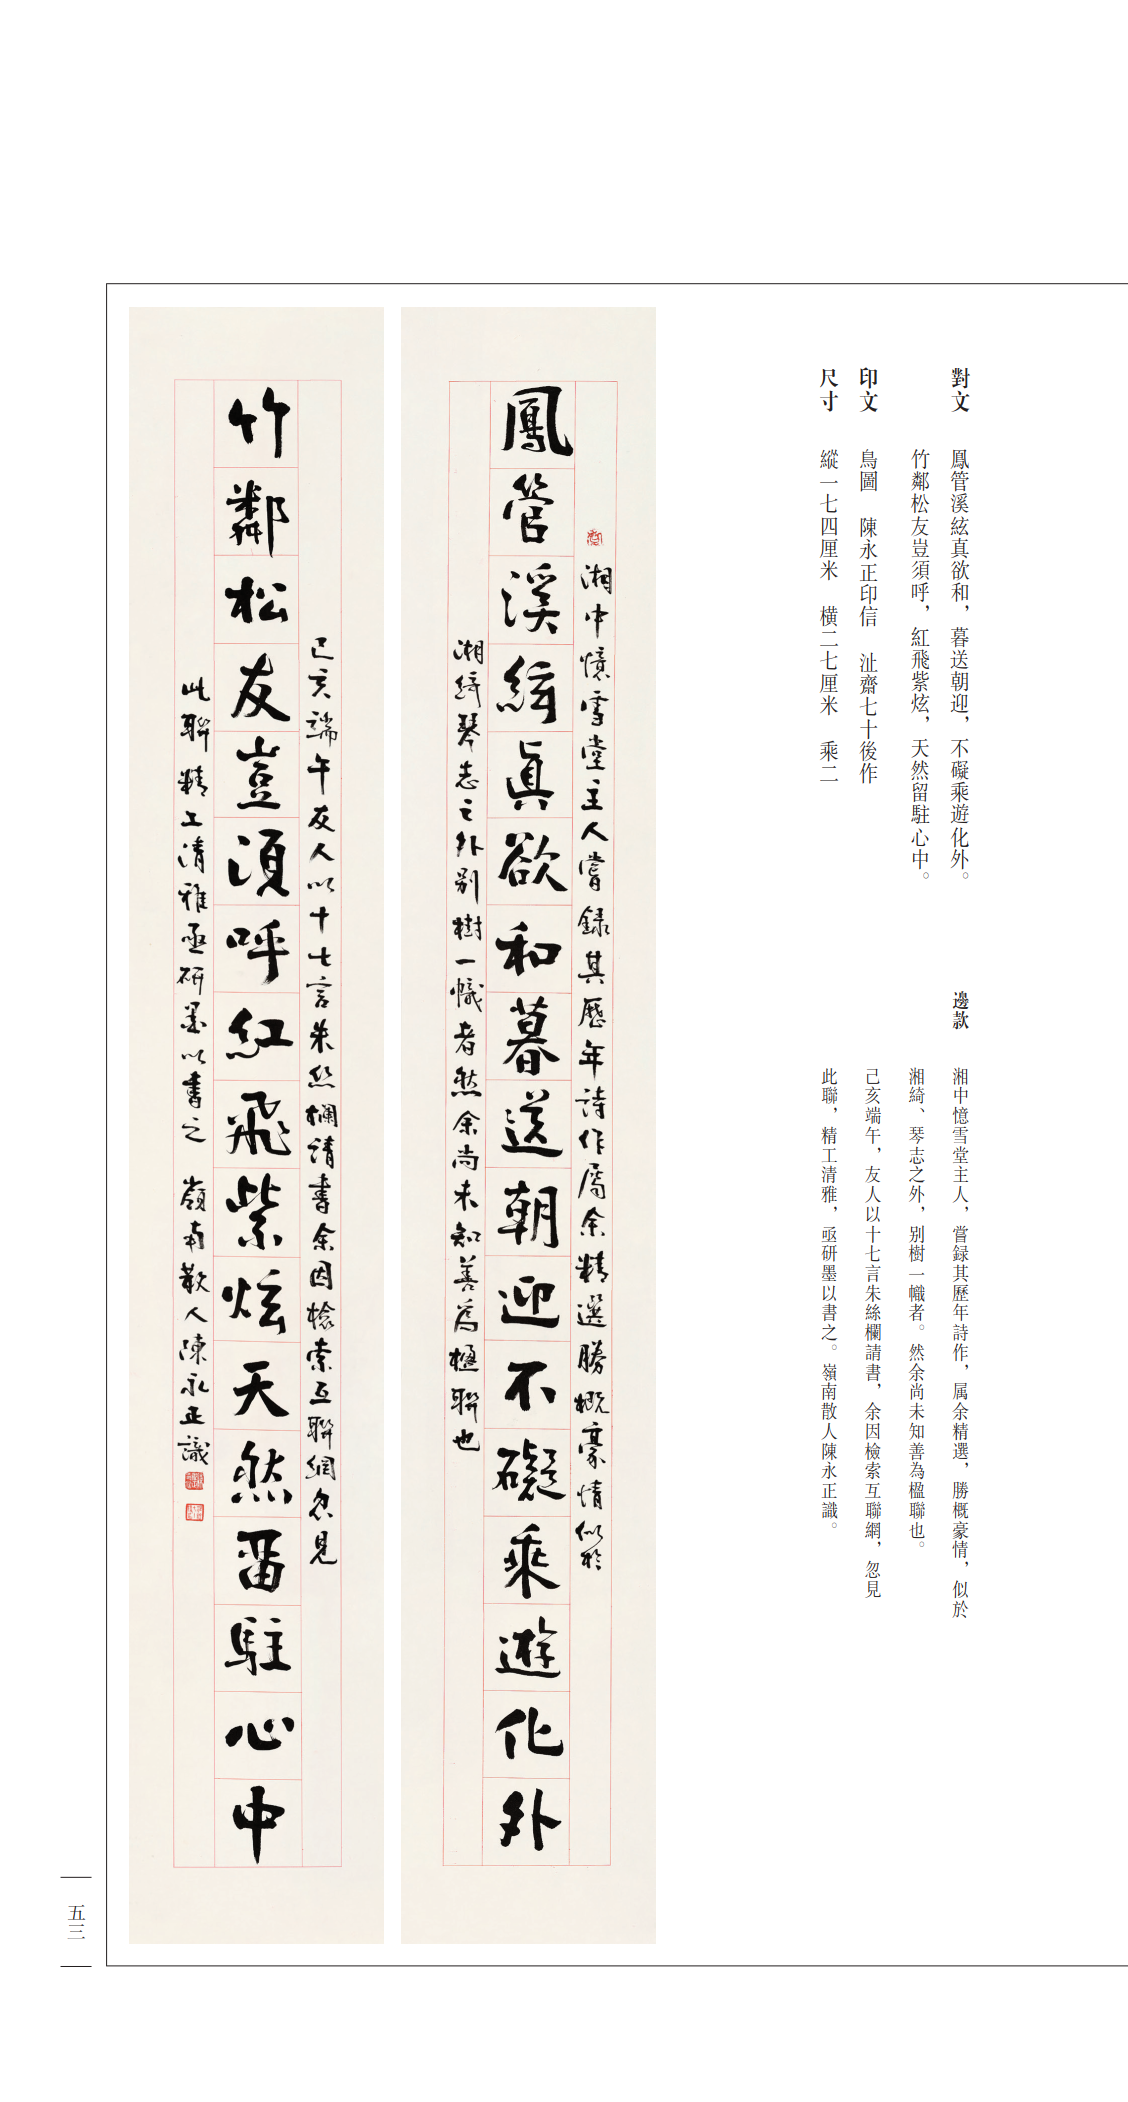 對文　鳳管溪絃真欲和，暮送朝迎，不礙乘遊化外。
竹鄰松友豈須呼，紅飛紫炫，天然留駐心中。
印文　鳥圖　陳永正印信　沚齋七十後作
尺寸　縱一七四厘米　橫二七厘米　乘二
邊款　湘中憶雪堂主人，嘗録其歷年詩作，属余精選，勝概豪情，似於
湘綺、琴志之外，別樹一幟者。然余尚未知善為楹聯也。
己亥端午，友人以十七言朱絲欄請書，余因檢索互聯網，忽見
此聯，精工清雅，亟研墨以書之。嶺南散人陳永正識。
湘中憶雪堂主人嘗録其歷年詩作属余精選勝概豪情似於
鳳管溪絃真欲和暮送朝迎不礙乘遊化外
湘綺琴志之外別樹一幟者然余尚未知善為楹聯也
己亥端午友人以十七言朱絲欄請書余因檢索互聯網忽見
竹鄰松友豈須呼紅飛紫炫天然留駐心中
此聯精工清雅亟研墨以書之　嶺南散人陳永正識
五三